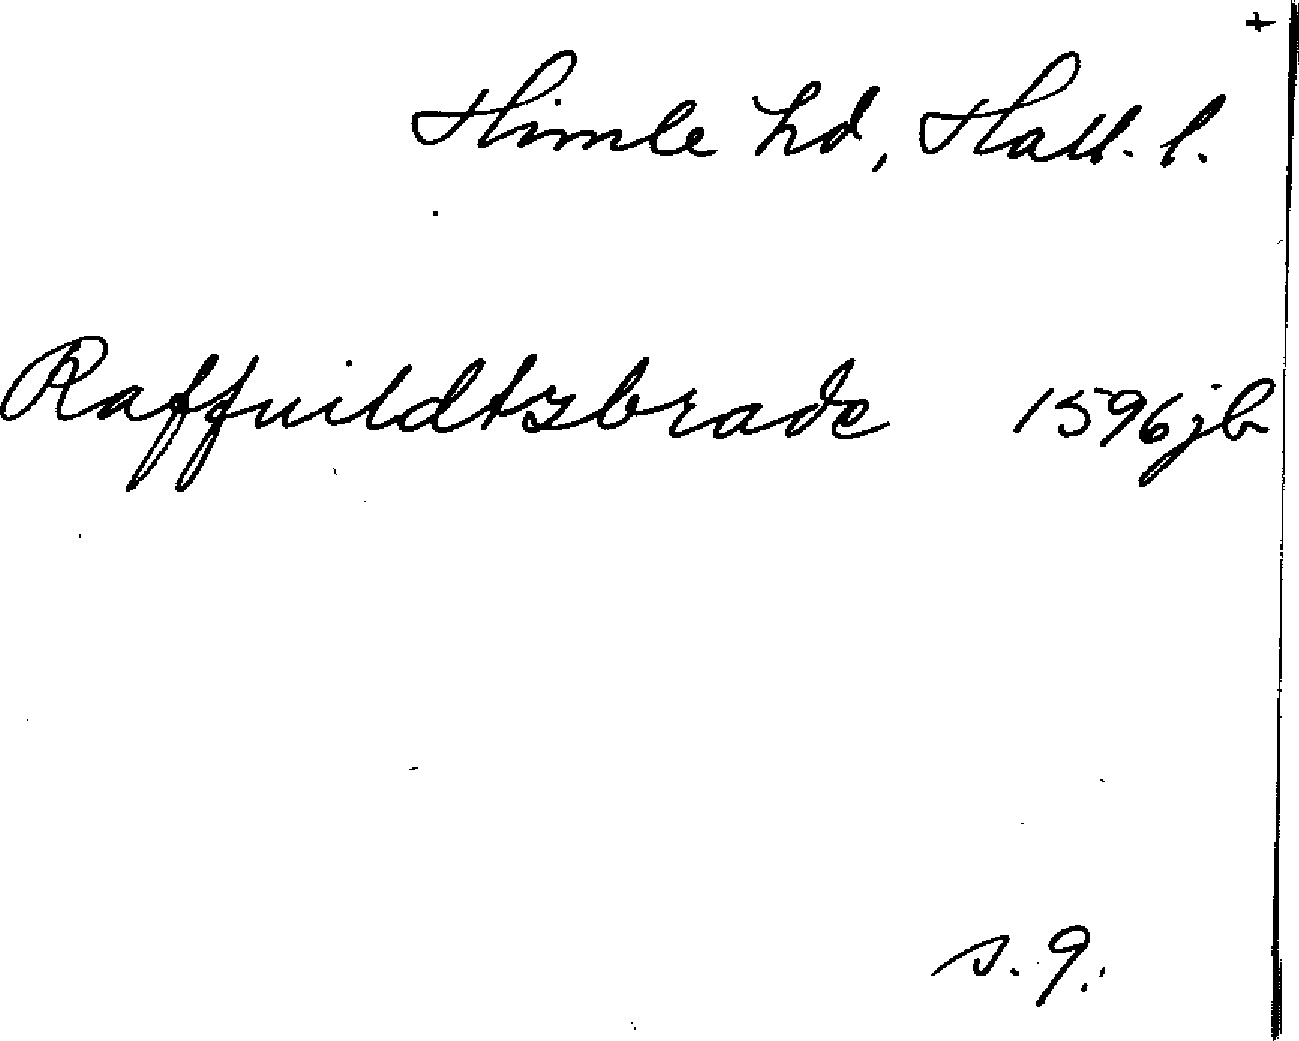 +
Himle hd, Hall. l.
Raffuildtzbrade 1596 jb
s. 9.